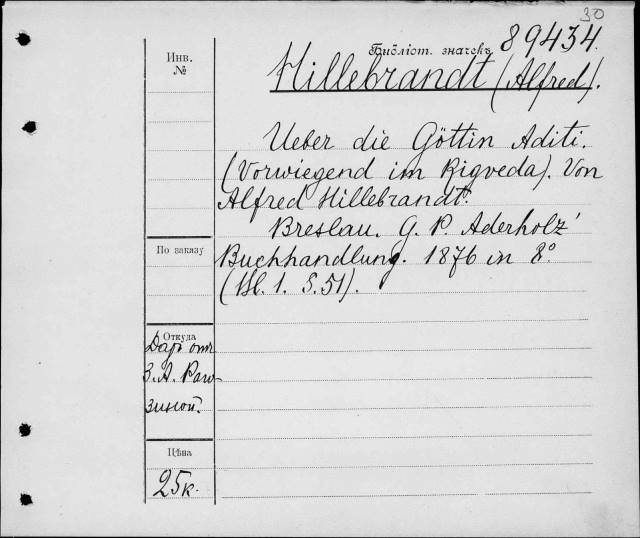 30
Библіот. значекъ 89434.
Инв.
№
Hillebrandt (Alfred).
Ueber die Göttin Aditi.
(Vorwiegend im Rigveda). Von
Alfred Hillebrandt.
Breslau. G. P. Aderholz'
Buchhandlung. 1876 in 8°
(Bl. 1. S. 51).
По заказу
Откуда
Даръ отъ
З. А. Раго-
зиной.
Цѣна
25к.